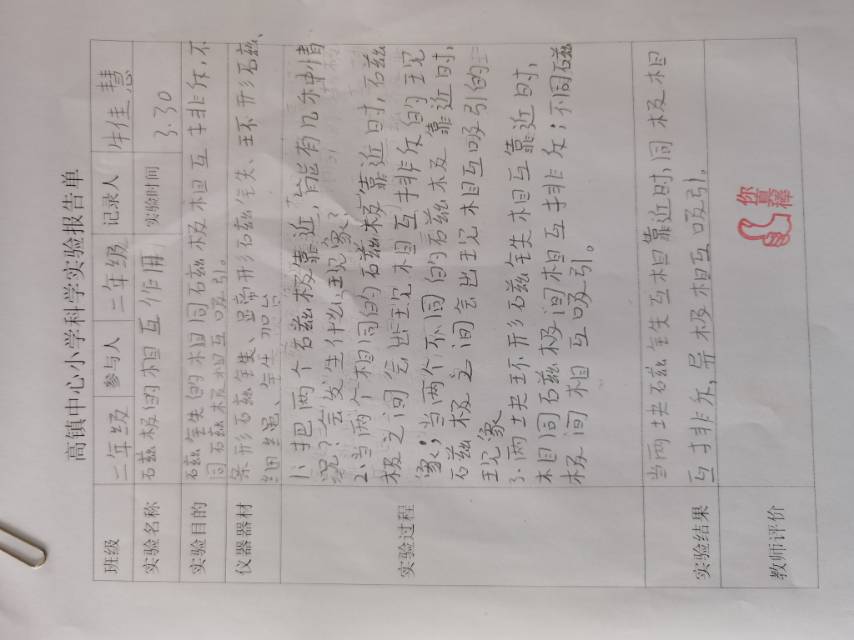 高镇中心小学科学实验报告单
班级 二年级 参与人 二年级 记录人 牛佳慧
实验名称 磁极的相互作用 实验时间 3.30
实验目的 磁铁的相同磁极相互排斥,不
同磁极相互吸引。
仪器器材 条形磁铁、蹄形磁铁、环形磁铁、
细绳、铁架台
实验过程
1、把两个磁极靠近,能有几种情
况?会发生什么现象?
2.当两个相同的磁极靠近时,磁
极之间会出现相互排斥的现
象;当两个不同的磁极靠近时,
磁极之间会出现相互吸引的
现象
3.两块环形磁铁相互靠近时,
相同磁极间相互排斥;不同磁
极间相互吸引。
实验结果 当两块磁铁互相靠近时,同极相
互排斥,异极相互吸引。
教师评价
你真棒